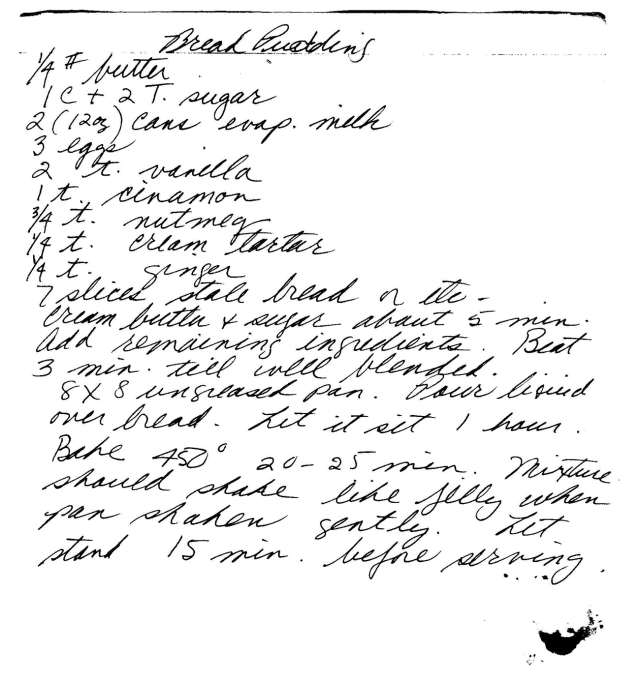 Bread Pudding
1/4 # butter
1 C + 2 T. sugar
2 (12oz) cans evap. milk
3 eggs
2 t. vanilla
1 t. cinamon
3/4 t. nutmeg
1/4 t. cream tartar
1/4 t. ginger
7 slices stale bread or etc -
Cream butter & sugar about 5 min.
Add remaining ingredients. Beat
3 min. till well blended.
8 X 8 ungreased pan. Pour liquid
over bread. Let it sit 1 hour.
Bake 450° 20-25 min. Mixture
should shake like jelly when
pan shaken gently. Let
stand 15 min. before serving.